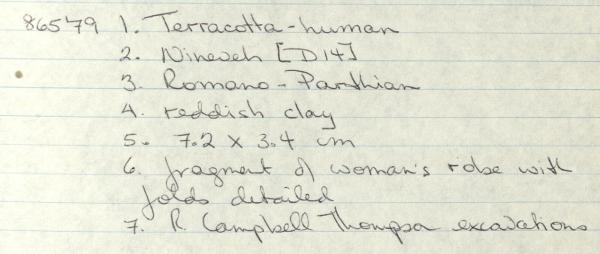 86579 1. Terracotta-human
2. Nineveh [D14]
3. Romano-Parthian
4. reddish clay
5. 7.2 x 3.4 cm
6. fragment of woman's robe with
folds detailed
7. R. Campbell Thompson excavations